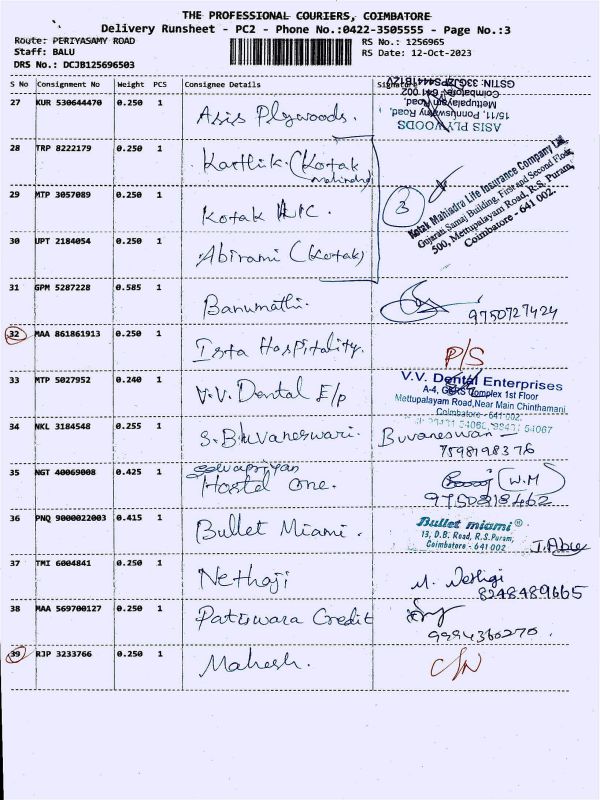 THE PROFESSIONAL COURIERS, COIMBATORE
Delivery Runsheet - PC2 - Phone No.:0422-3505555 - Page No.:3
Route: PERIYASAMY ROAD
RS No.: 1256965
Staff: BALU
RS Date: 12-Oct-2023
DRS No.: DCJB125696503
S No Consignment No Weight PCS Consignee Details
27 KUR 530644470 0.250 1 Asis Plywoods.
ASIS PLYWOODS
15/11, Ponnuswamy Road,
Mettupalayam Road,
Coimbatore - 641 002
28 TRP 8222179 0.250 1 Karthik. (Kotak
mahindra)
29 MTP 3057089 0.250 1 Kotak
3
Kotak Mahindra Life Insurance Company Ltd.
Gujarati Samaj Building, First and Second Floor,
500, Mettupalayam Road, R.S. Puram,
Coimbatore - 641 002.
30 UPT 2184054 0.250 1 Abirami (Kotak)
31 GPM 5287228 0.585 1 Banumathi.
9750727424
32 MAA 861861913 0.250 1 Ista Hospitality.
P/S
33 MTP 5027952 0.240 1 V.V. Dental E/p
V.V. Dental Enterprises
A-4, Complex 1st Floor
Mettupalayam Road,Near Main Chinthamani,
Coimbatore - 641 002.
34 NKL 3184548 0.255 1 S. Bhuvaneswari.
Buvaneswari
7598198376
35 NGT 40069008 0.425 1 Selvapriyan
Hostel one.
(W.M)
9750818462
36 PNQ 9000022003 0.415 1 Bullet Miami.
Bullet miami ®
13, D.B. Road, R.S.Puram,
Coimbatore - 641 002
37 TMI 6004841 0.250 1 Nethaji
8248489665
38 MAA 569700127 0.250 1 Patuwara Credit
9994360270.
39 RJP 3233766 0.250 1 Mahesh.
C/N